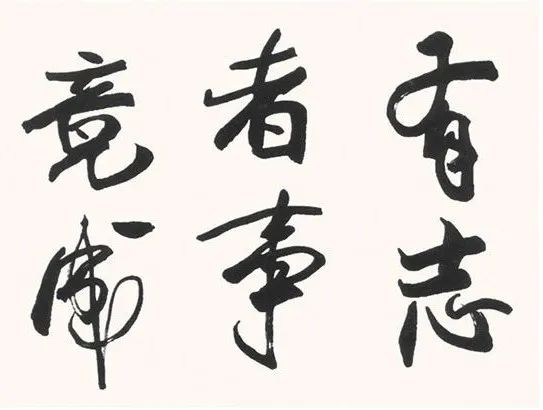 有志
者事
竟成